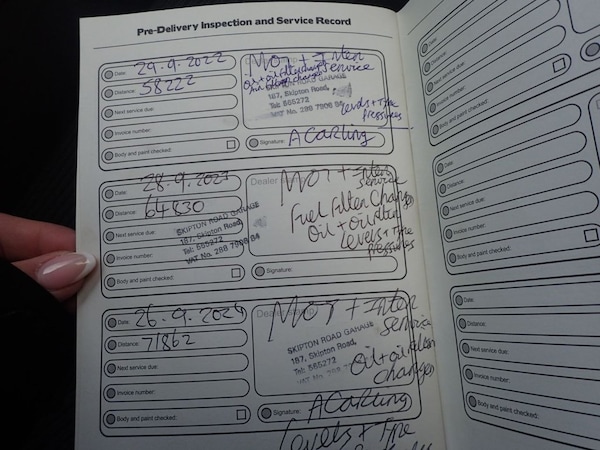 Pre-Delivery Inspection and Service Record
Date: 29.9.2022
Distance: 58222
Next service due:
Invoice number:
Body and paint checked:
MOT + Inter
Service
Oil + oil filter change
SKIPTON ROAD GARAGE
187, Skipton Road,
Tel: 565272
VAT No. 288 7906 84
Levels + Tyre
Pressures
Signature: A Carling
Date: 28.9.2023
Distance: 64830
Next service due:
Invoice number:
Body and paint checked:
SKIPTON ROAD GARAGE
187, Skipton Road,
Tel: 565272
VAT No. 288 7906 84
Dealer
MOT + Inter
Service
Fuel Filter Change
Oil + oil filter
Levels + Tyre
Pressures
Signature:
Date: 26.9.2024
Distance: 71862
Next service due:
Invoice number:
Body and paint checked:
MOT + Inter
Service
SKIPTON ROAD GARAGE
187, Skipton Road,
Tel: 565272
VAT No. 288
Oil + oil filter
Changed
Signature: A Carling
Levels + Tyre
Date:
Distance:
Next service due:
Invoice number:
Body and paint checked:
Date:
Distance:
Next service due:
Invoice number:
Body and paint checked:
Date:
Distance:
Next service due:
Invoice number:
Body and paint checked: